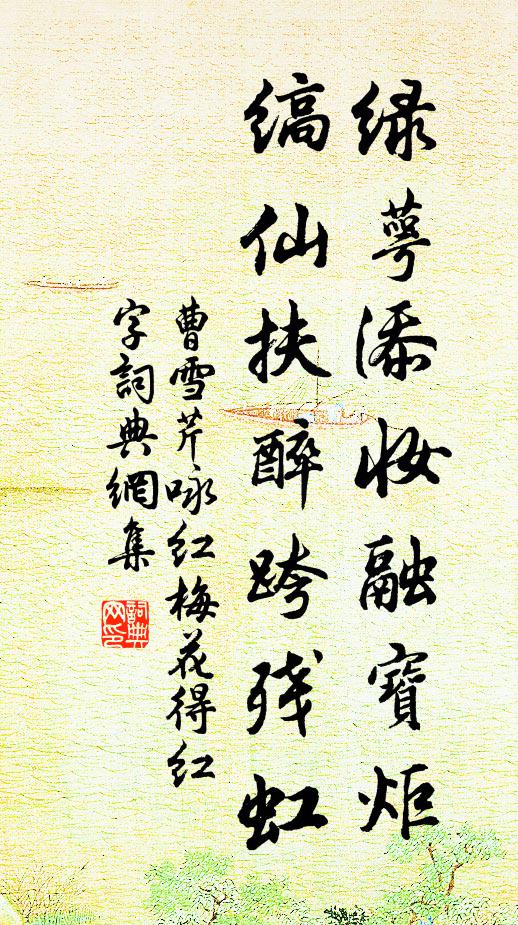 绿萼添妆融寶炬
缟仙扶醉跨残虹
曹雪芹咏红梅花得红
字詞典網集
詞典网印